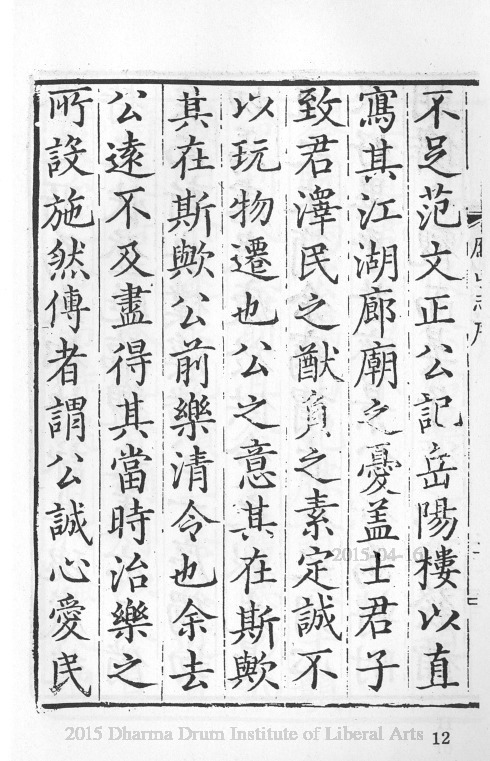 不足范文正公記岳陽樓以直
寫其江湖廊廟之憂盖士君子
致君澤民之猷負之素定誠不
以玩物遷也公之意其在斯歟
其在斯歟公前樂清令也余去
公遠不及盡得其當時治樂之
所設施然傳者謂公誠心愛民
2015-04-16
2015 Dharma Drum Institute of Liberal Arts
12